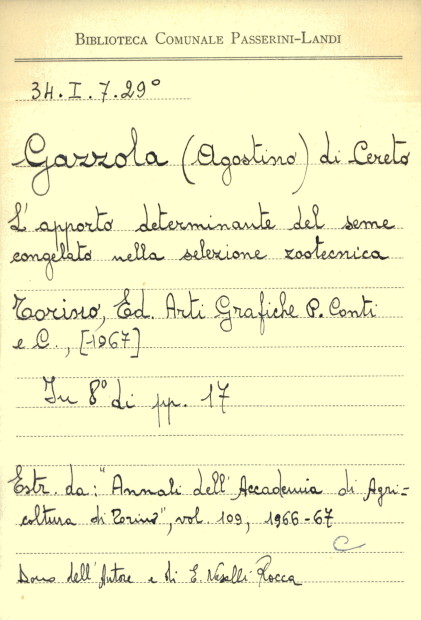 BIBLIOTECA COMUNALE PASSERINI-LANDI
34.I.7.29°
Gazzola (Agostino) di Cereto
L'apporto determinante del seme
congelato nella selezione zootecnica
Torino, Ed. Arti Grafiche P. Conti
e C., [1967]
In 8° di pp. 17
Estr. da: "Annali dell'Accademia di Agri=
coltura di Torino", vol. 109, 1966-67
C
Dono dell'Autore e di E. Nasalli Rocca